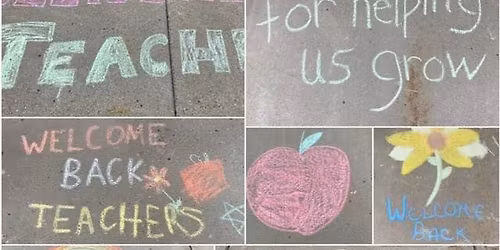 TEACH
for helping
us grow
WELCOME
BACK
TEACHERS
WELCOME
BACK